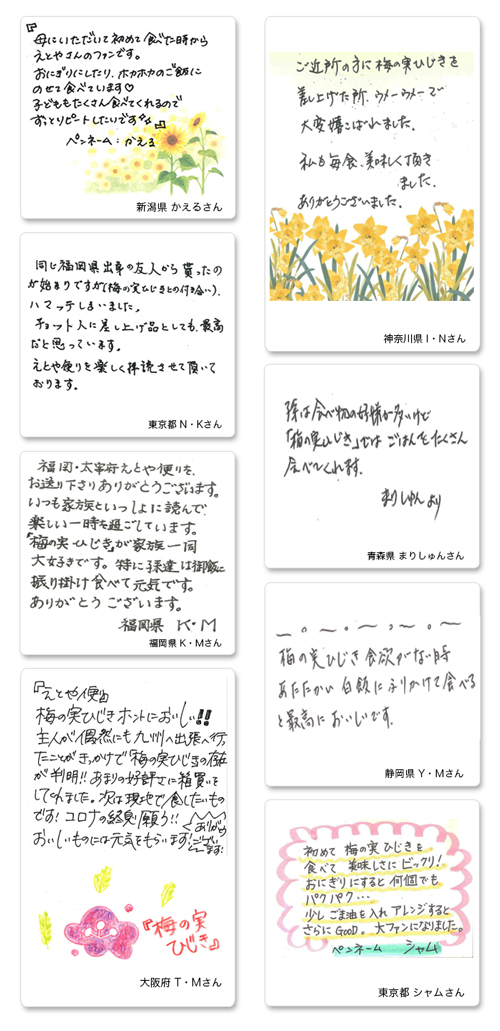 『
母にいただいて初めて食べた時から
えとやさんのファンです。
おにぎりにしたり、ホカホカのご飯に
のせて食べています♡
子どももたくさん食べてくれるので
ずっとリピートしたいです
』
ペンネーム：かえる
新潟県 かえるさん
同じ福岡県出身の友人から貰ったの
が始まりですが(梅の実ひじきとの付き合い)、
ハマッテしまいました。
チョット人に差し上げ品としても、最高
だと思っています。
えとや便りを楽しく拝読させて頂いて
おります。
東京都 N・Kさん
福岡・太宰府えとや便りを、
お送り下さりありがとうございます。
いつも家族といっしょに読んで
楽しい一時を過ごしています。
「梅の実ひじき」が家族一同
大好きです。特に子供達は御飯に
振り掛け食べて元気です。
ありがとうございます。
福岡県 K・M
福岡県 K・Mさん
『えとや便』
梅の実ひじきホントにおいしい!!
主人が偶然にも九州へ出張へ行っ
たことがきっかけで「梅の実ひじきの存在
が判明!! あまりの好評さに箱買いを
してくれました。次は現地で食したいもの
です! コロナの終息願う!!
おいしいものには元気をもらいます!
ありがとうございます!
『梅の実
ひじき』
大阪府 T・Mさん
ご近所の方に梅の実ひじきを
差し上げた所、ウメーウメーで
大変嬉こばれました。
私も毎食、美味しく頂き
ました。
ありがとうございました。
神奈川県 I・Nさん
孫は食べ物の好嫌が多いけど
「梅の実ひじき」では ごはんをたくさん
食べてくれます。
まりしゅんより
青森県 まりしゅんさん
梅の実ひじき 食欲がない時
あたたかい白飯にふりかけて食べる
と最高においしいです。
静岡県 Y・Mさん
初めて 梅の実ひじきを
食べて 美味しさにビックリ!
おにぎりにすると 何個でも
パクパク…
少しごま油を入れ アレンジすると
さらにGOOD。大ファンになりました。
ペンネーム シャム
東京都 シャムさん